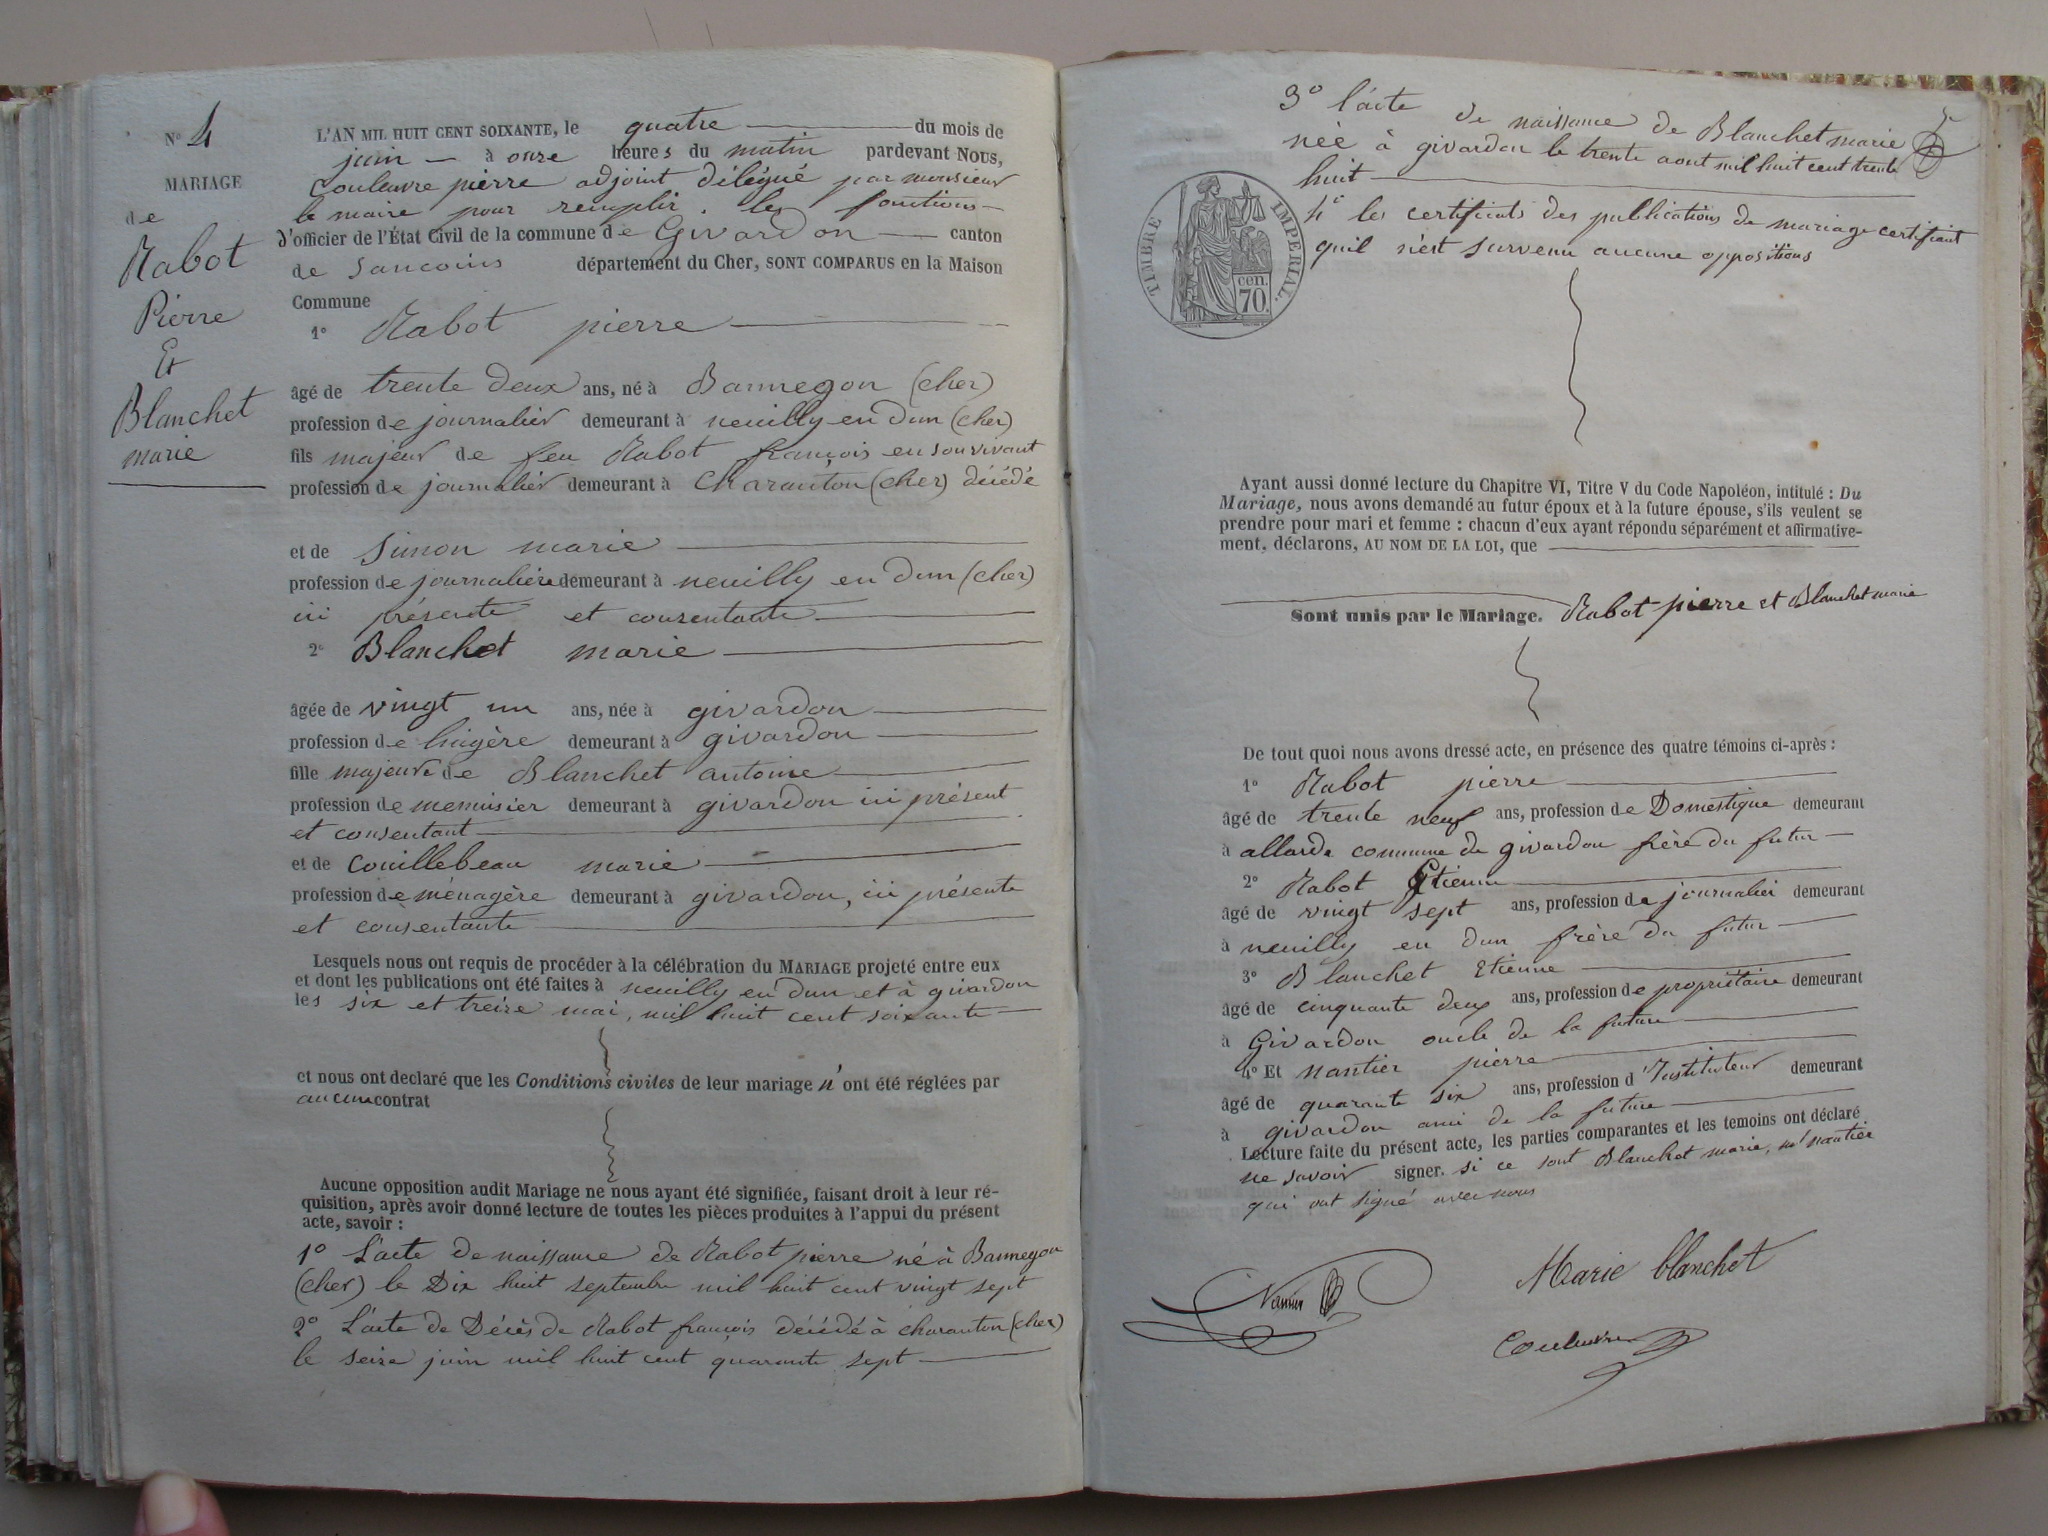 N° 4
MARIAGE
de
Rabot
Pierre
Et
Blanchet
marie
L'AN MIL HUIT CENT SOIXANTE, le quatre du mois de
juin à onze heures du matin pardevant NOUS,
Couleuvre pierre adjoint délégué par monsieur
le maire pour remplir les fonctions
d'officier de l'État Civil de la commune de Givardon canton
de Sancoins département du Cher, SONT COMPARUS en la Maison
Commune
1° Rabot pierre
âgé de trente deux ans, né à Bannegon (cher)
profession de journalier demeurant à neuilly en dun (cher)
fils majeur de feu Rabot françois en son vivant
profession de journalier demeurant à Charanton (cher) décédé
et de Simon marie
profession de journalière demeurant à neuilly en dun (cher)
ici présente et consentante
2° Blanchet marie
âgée de vingt un ans, née à givardon
profession de lingère demeurant à givardon
fille majeure de Blanchet antoine
profession de menuisier demeurant à givardon ici présent
et consentant
et de Couillebeau marie
profession de ménagère demeurant à givardon, ici présente
et consentante
Lesquels nous ont requis de procéder à la célébration du MARIAGE projeté entre eux
et dont les publications ont été faites à neuilly en dun et à givardon
les six et treize mai, mil huit cent soixante
et nous ont declaré que les Conditions civiles de leur mariage n'ont été réglées par
aucun contrat
Aucune opposition audit Mariage ne nous ayant été signifiée, faisant droit à leur ré-
quisition, après avoir donné lecture de toutes les pièces produites à l'appui du présent
acte, savoir :
1° L'acte de naissance de Rabot pierre né à Bannegon
(cher) le Dix huit septembre mil huit cent vingt sept
2° L'acte de Décès de Rabot françois décédé à charanton (cher)
le seize juin mil huit cent quarante sept
3° l'acte de naissance de Blanchet marie
née à givardon le trente aout mil huit cent trente
huit
4° les certificats des publications de mariage certifiant
quil n'est survenu aucune oppositions
TIMBRE IMPERIAL.
cen.
70.
Ayant aussi donné lecture du Chapitre VI, Titre V du Code Napoléon, intitulé : Du
Mariage, nous avons demandé au futur époux et à la future épouse, s'ils veulent se
prendre pour mari et femme : chacun d'eux ayant répondu séparément et affirmative-
ment, déclarons, AU NOM DE LA LOI, que
Sont unis par le Mariage. Rabot pierre et Blanchet marie
De tout quoi nous avons dressé acte, en présence des quatre témoins ci-après :
1° Rabot pierre
âgé de trente neuf ans, profession de Domestique demeurant
à allarde commune de givardon frère du futur
2° Rabot Etienne
âgé de vingt sept ans, profession de journalier demeurant
à neuilly en dun frère du futur
3° Blanchet Etienne
âgé de cinquante deux ans, profession de propriétaire demeurant
à Givardon oncle de la future
4° Et nantier pierre
âgé de quarante six ans, profession d'Instituteur demeurant
à givardon ami de la future
Lecture faite du présent acte, les parties comparantes et les temoins ont déclaré
ne savoir signer. si ce sont Blanchet marie, nantier
qui ont signé avec nous
Marie blanchet
Couleuvre